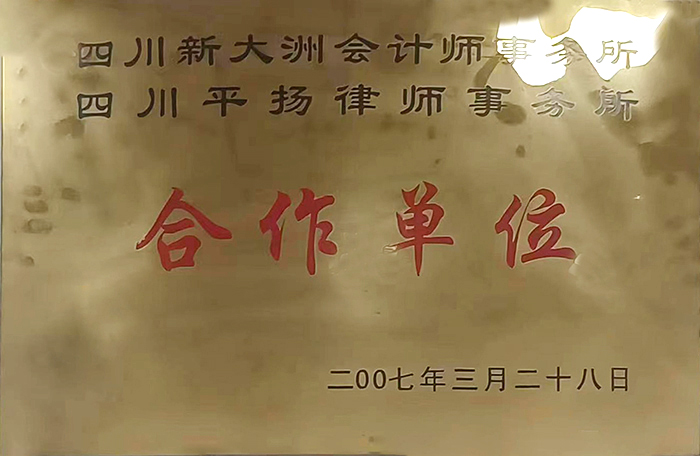 四川新大洲会计师事务所
四川平扬律师事务所
合作单位
二00七年三月二十八日